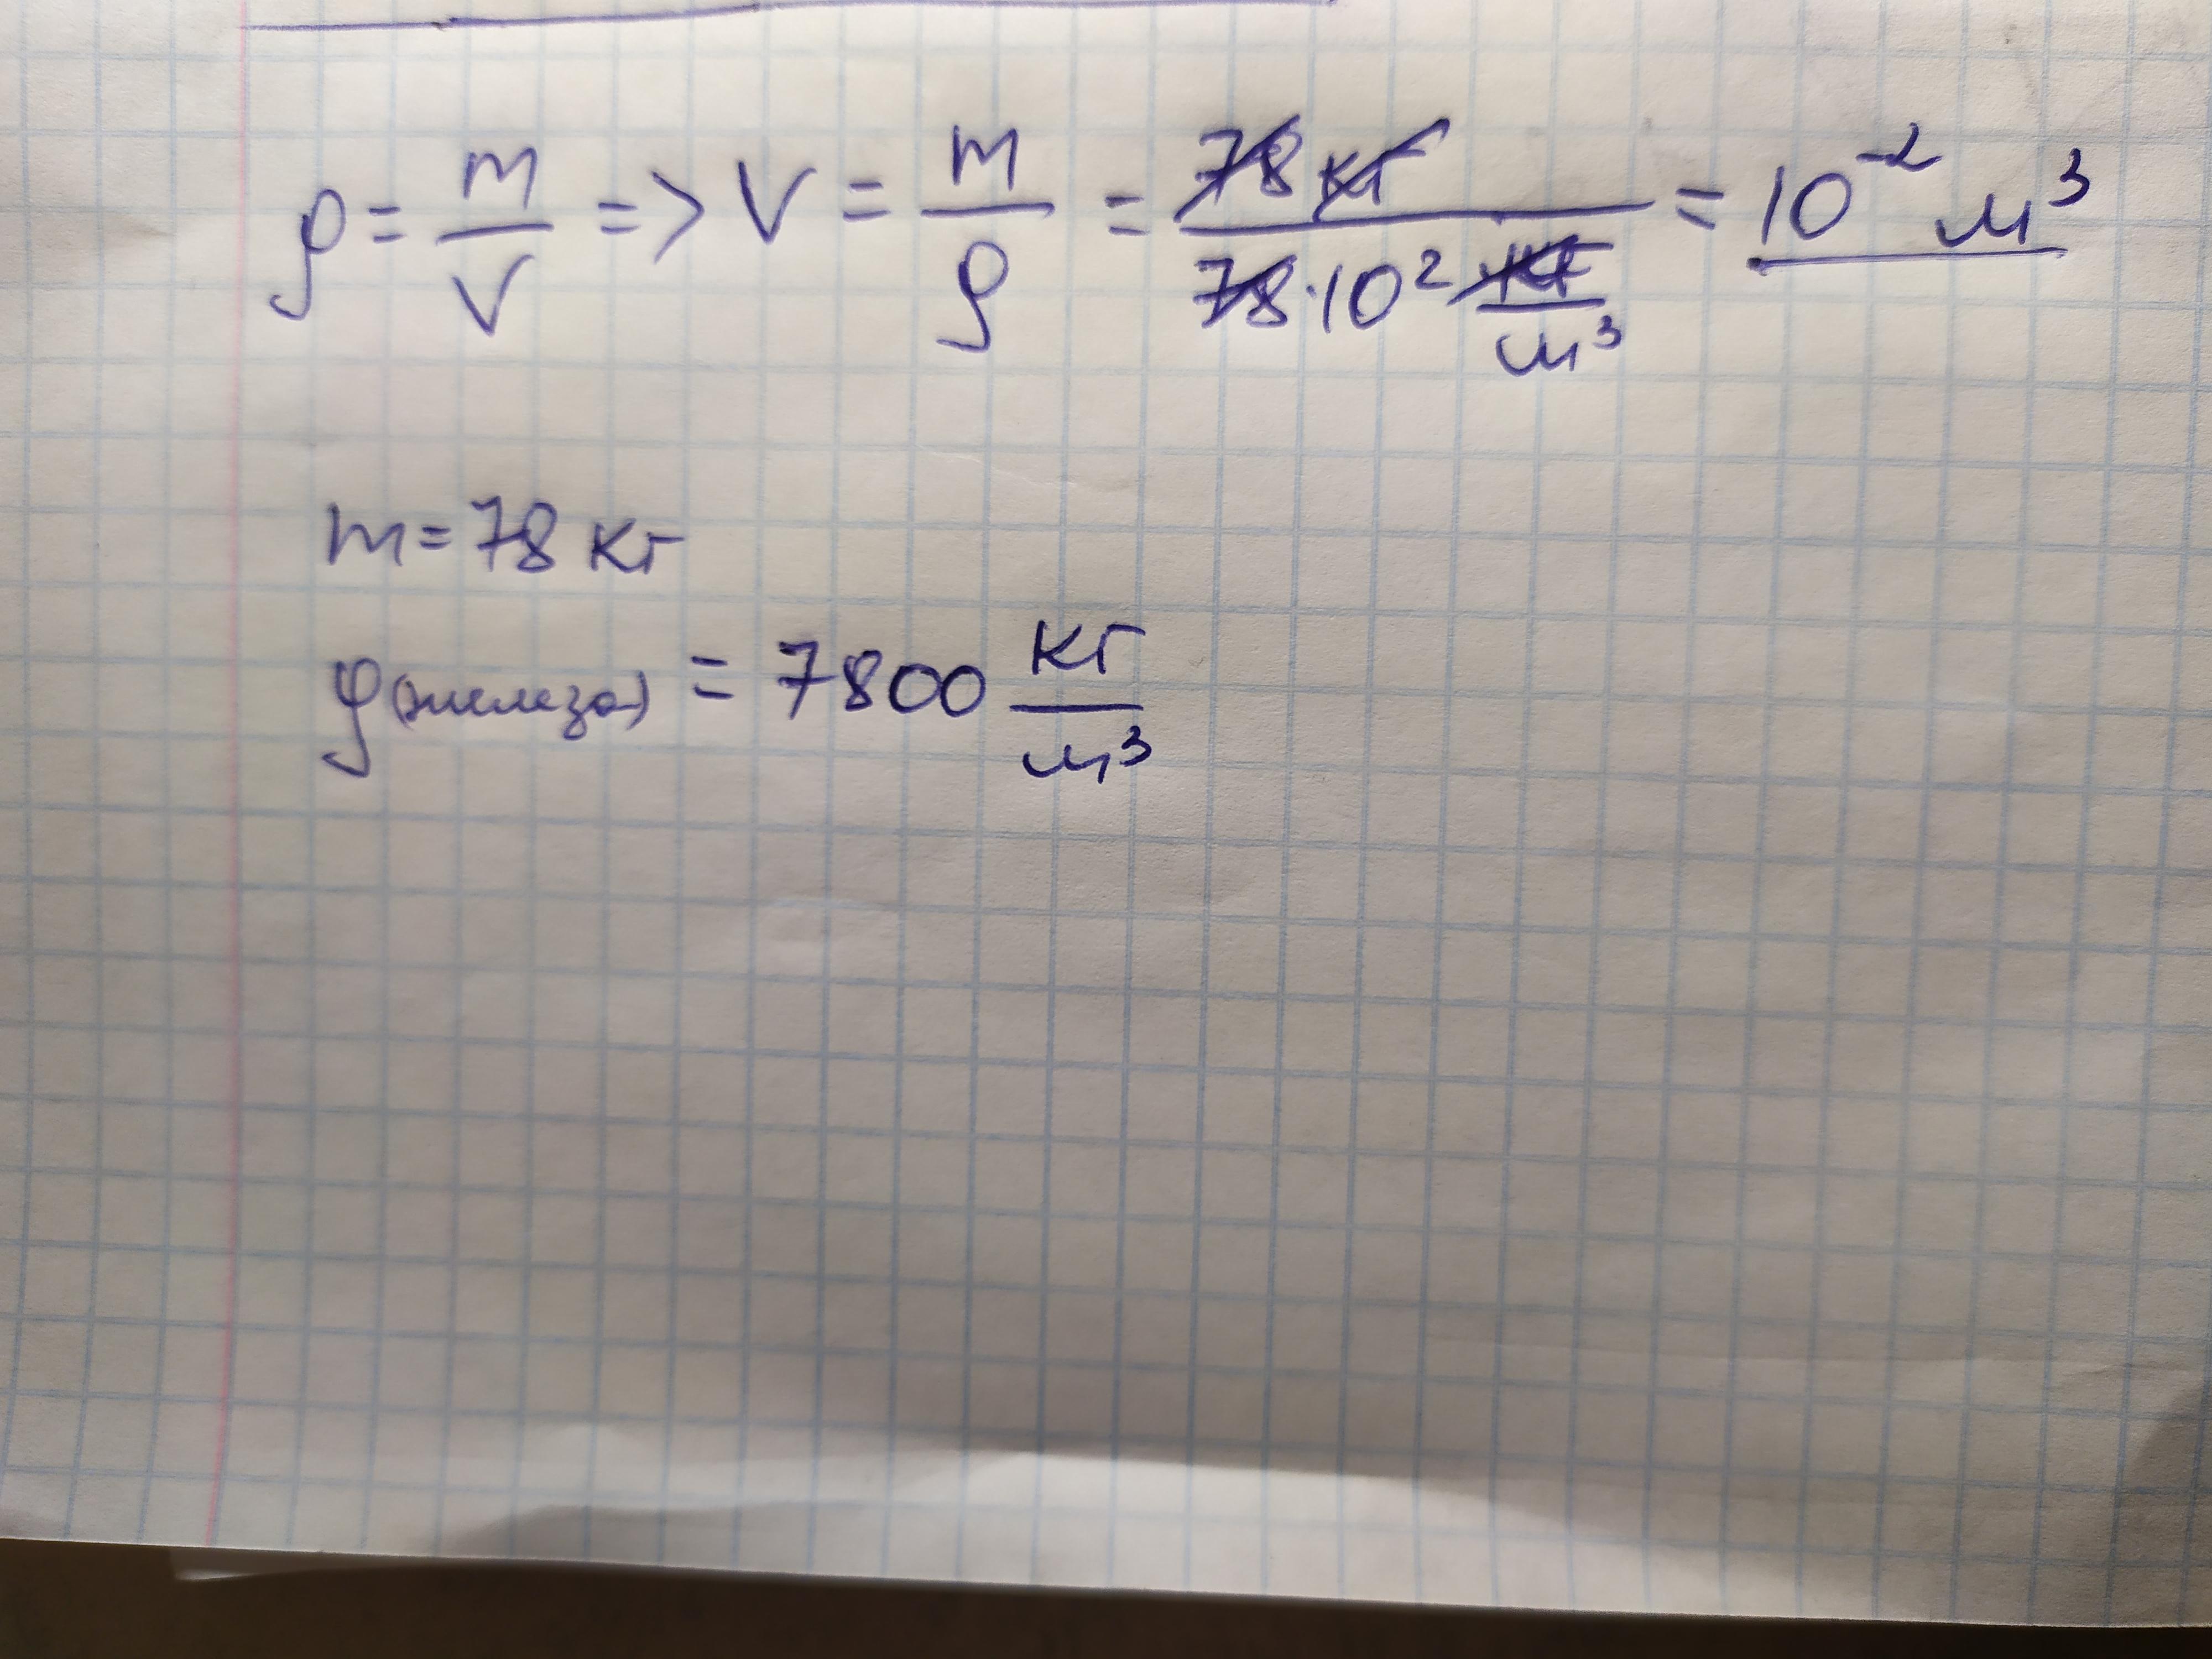 ρ = m/V => V = m/ρ = 78 кг / 78·10² кг/м³ = 10⁻² м³
m = 78 кг
ρ(железа) = 7800 кг/м³